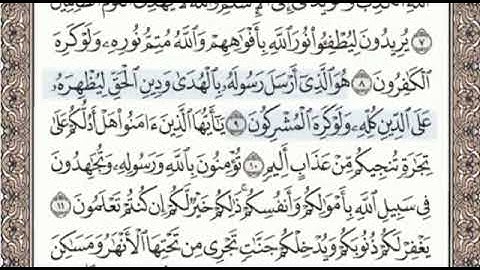 اللَّهِ الْكَذِبَ وَهُوَ يُدْعَىٰ إِلَى الْإِسْلَامِ وَاللَّهُ لَا يَهْدِي الْقَوْمَ الظَّالِمِينَ
٧ يُرِيدُونَ لِيُطْفِـُٔوا۟ نُورَ ٱللَّهِ بِأَفْوَٰهِهِمْ وَٱللَّهُ مُتِمُّ نُورِهِۦ وَلَوْ كَرِهَ
ٱلْكَٰفِرُونَ ٨ هُوَ ٱلَّذِىٓ أَرْسَلَ رَسُولَهُۥ بِٱلْهُدَىٰ وَدِينِ ٱلْحَقِّ لِيُظْهِرَهُۥ
عَلَى ٱلدِّينِ كُلِّهِۦ وَلَوْ كَرِهَ ٱلْمُشْرِكُونَ ٩ يَٰٓأَيُّهَا ٱلَّذِينَ ءَامَنُوا۟ هَلْ أَدُلُّكُمْ عَلَىٰ
تِجَٰرَةٍ تُنجِيكُم مِّنْ عَذَابٍ أَلِيمٍ ١٠ تُؤْمِنُونَ بِٱللَّهِ وَرَسُولِهِۦ وَتُجَٰهِدُونَ
فِى سَبِيلِ ٱللَّهِ بِأَمْوَٰلِكُمْ وَأَنفُسِكُمْ ۚ ذَٰلِكُمْ خَيْرٌ لَّكُمْ إِن كُنتُمْ تَعْلَمُونَ ١١
يَغْفِرْ لَكُمْ ذُنُوبَكُمْ وَيُدْخِلْكُمْ جَنَّٰتٍ تَجْرِى مِن تَحْتِهَا ٱلْأَنْهَٰرُ وَمَسَٰكِنَ